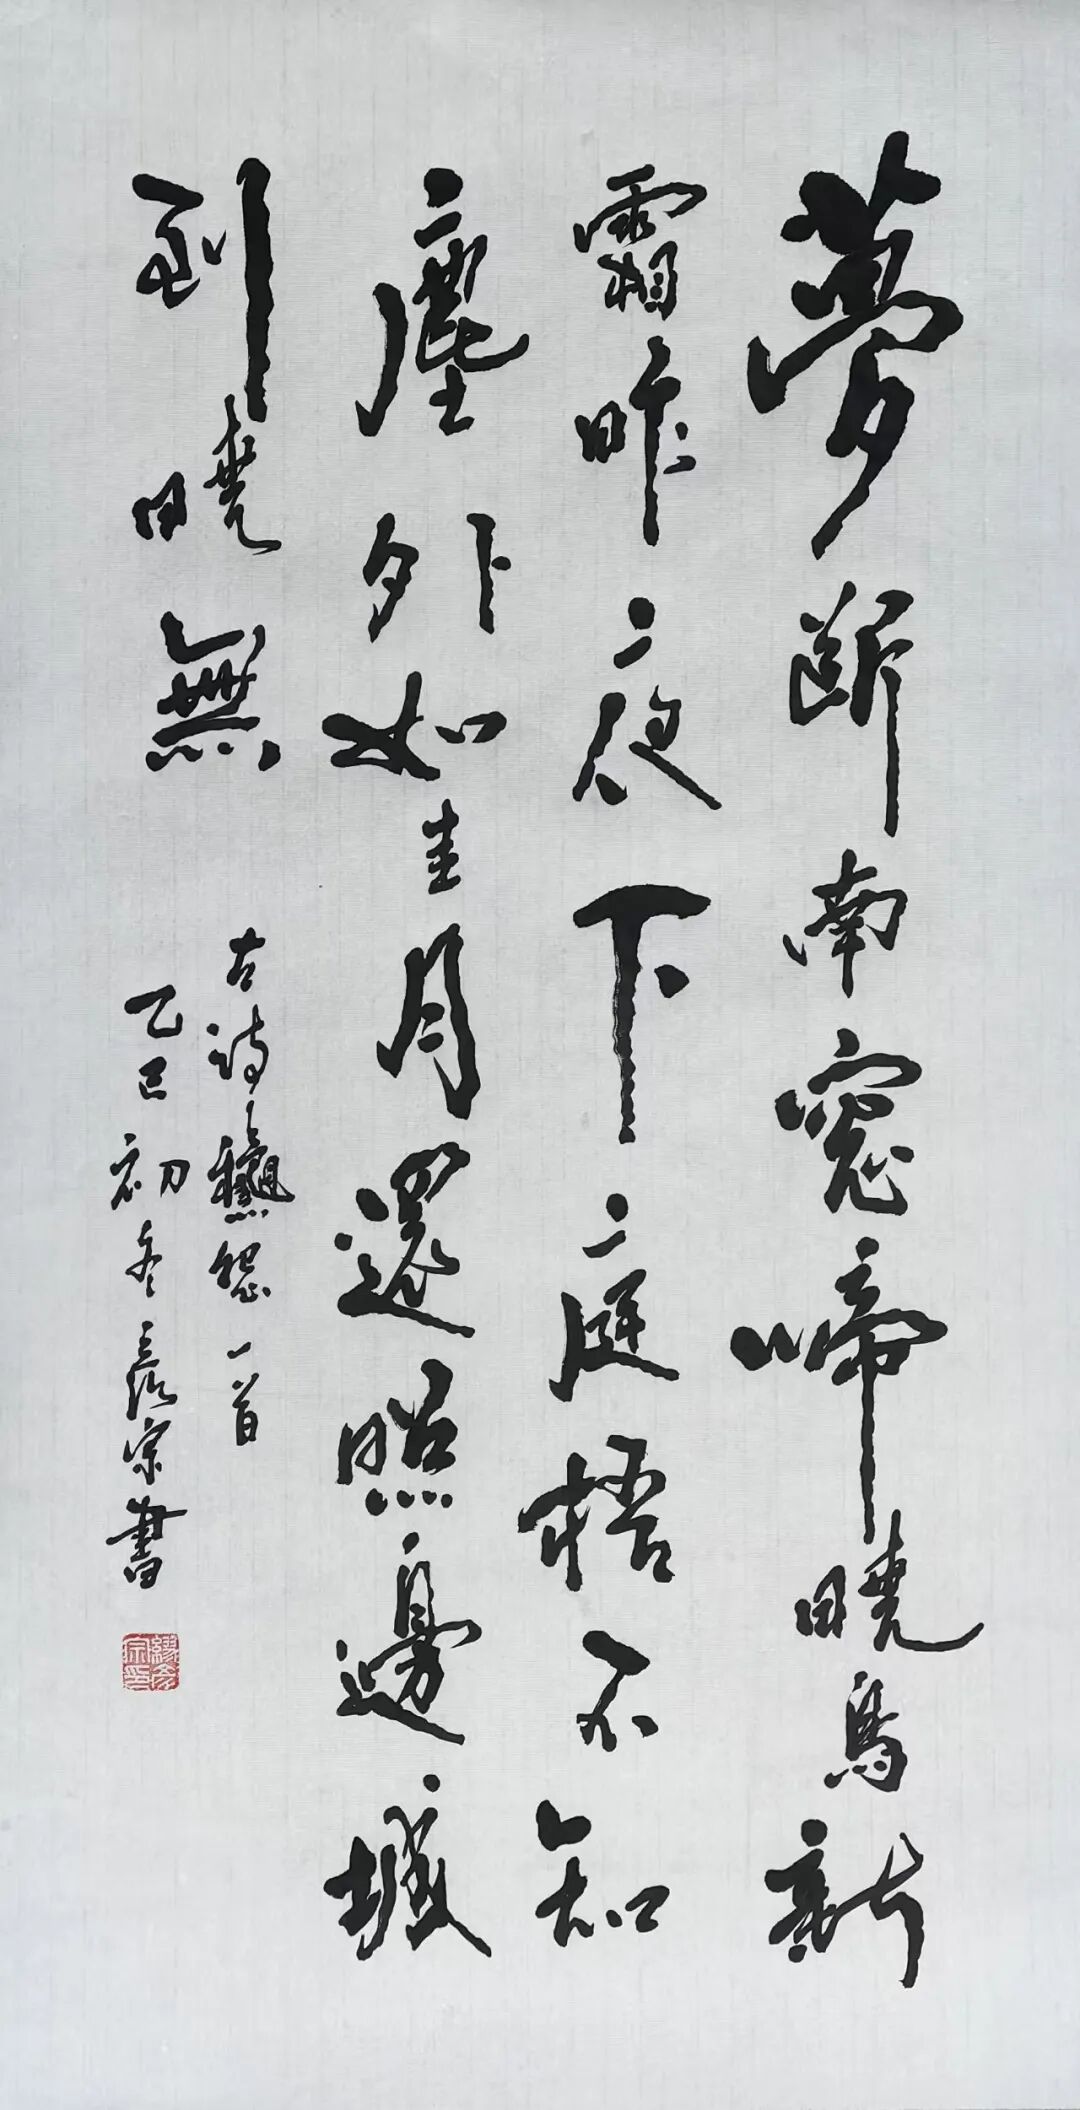 夢斷南窓啼曉烏新
霜昨夜下庭梧不知
塵外如圭月還照邊城
到曉無
古詩龝怨一首
乙巳初冬彦宗書